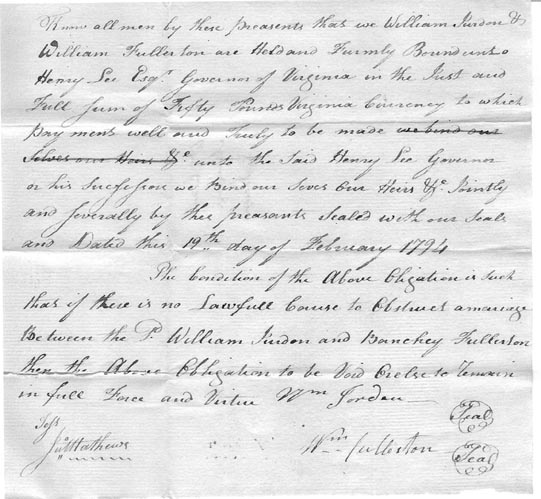 Know all men by these preasents that we William Jurdon &
William Fullerton are Held and Furmly Bound unto
Henry Lee Esqr. Governor of Virginia in the Just and
Full Sum of Fifty Pounds Virginia Currency to which
payment well and Truly to be made we bind our
Selves our Heirs &c. unto the Said Henry Lee Governor
or his Successors we Bind our Selves Our Heirs &c. Jointly
and Severally by these preasants Sealed with our Seals
and Dated this 19th day of February 1794
The Condition of the Above Obligation is Such
that if there is no Lawfull Cause to Obstruct a marriage
Between the Sd. William Jurdon and Fullerton
then the Above Obligation to be Void Or else to Remain
in full Force and Virtue Wm Jordan
Seal
Test
Mathews
Wm Fullerton
Seal